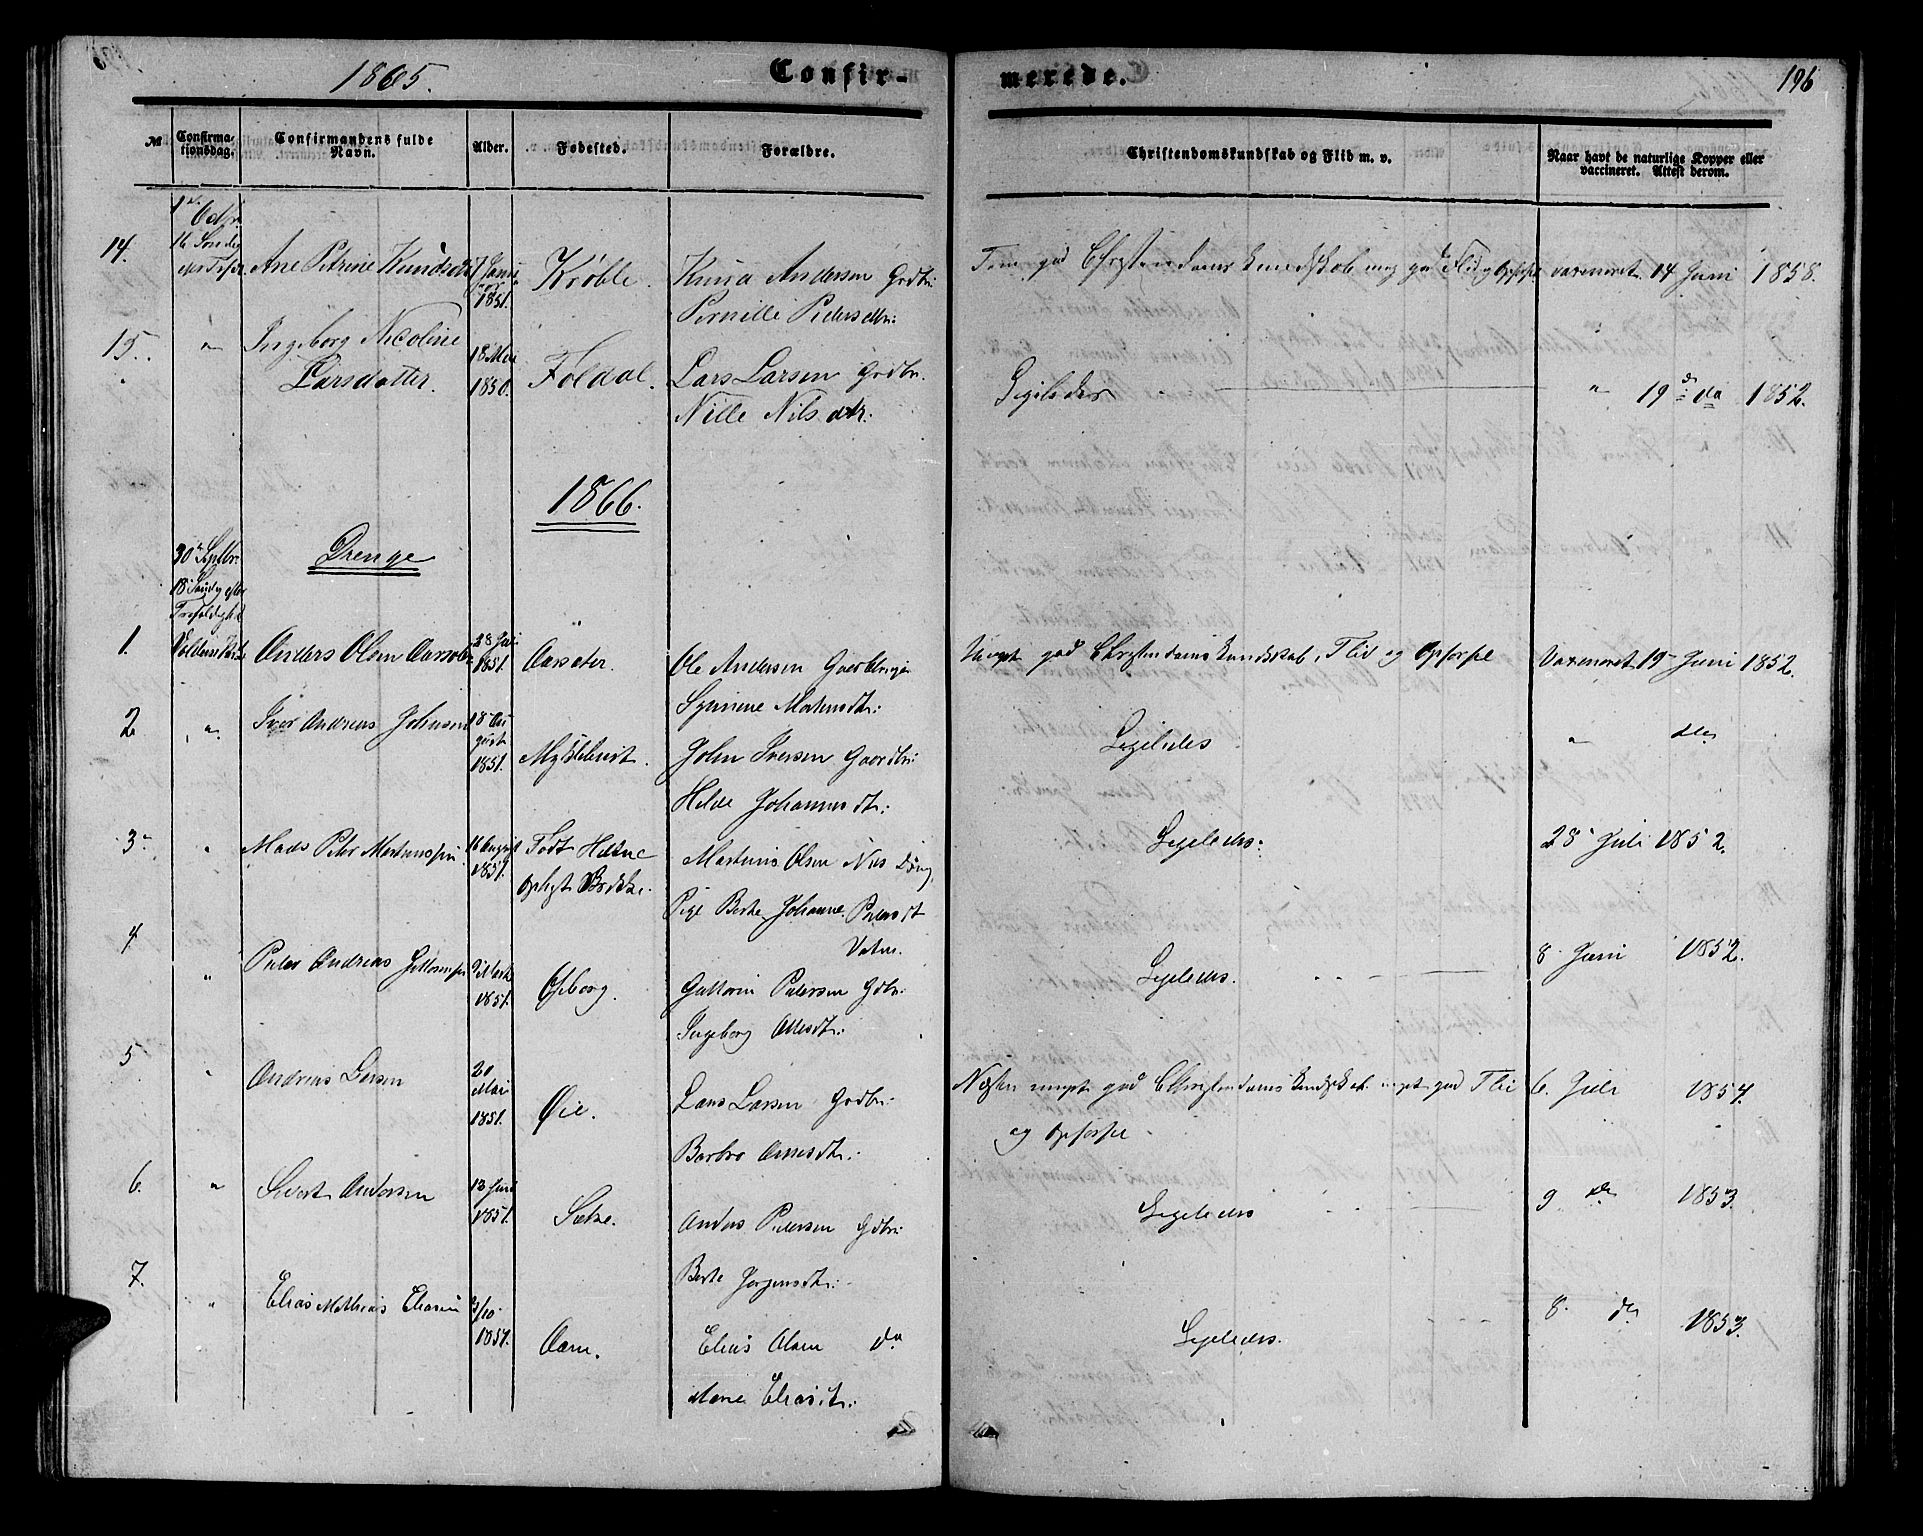 1865.
Confir-
merede.
196
№
Confirma-
tionsdag.
Confirmandens fulde
Navn.
Alder.
Fødested.
Forældre.
Christendomskundskab og Flid m. v.
Naar havt de naturlige Kopper eller
vaccineret. Attest derom.
14.
Ane Petrine
1851.
Krøble.
Andersen Grdbr:
Pernille Pedersdtr:
god Christendomskundskab meg god Flid og Opførsel
vaxineret 14 Juni 1858.
15.
"
Ingeborg Nicoline
Larsdatter.
18 Mai
1850.
Foldal.
Lars Larsen Grdbr.
Nille Nilsdtr.
Ligeledes
" 19 do 1852.
1866.
Drenge
30 Septbr.
18 Søndag efter
Trefoldighed
1.
Anders Olsen
28 Juli
1851.
Aarsæter.
Ole Andersen
Martensdtr:
Meget god Christendomskundskab, Flid og Opførsel
Vaxineret 19 Juni 1852.
2
"
Iver Andreas Johnsen
18 Au
gust
1851.
Myklebust.
John Iversen Gaardbr:
Hilde Johannesdtr:
Ligeledes
" do
3
"
Mads Peter Martinussen
16 August
1851.
Født
Martinus Olsen
Pige Berte Johanne Pedersdt
Ligeledes.
28 Juli 1852.
4
"
Peder Andreas
Marts
1851.
Pedersen Gdbr:
Ingeborg
Ligeledes.
8 Juni 1852.
5
"
Andreas Larsen
20
Mai
1851.
Øie.
Lars Larsen Grdbr:
Barbro
Næsten meget god Christendomskundskab meget god Flid
og Opførsel
6. Juli 1854.
6.
"
Sivert Andersen
13 Juni
1851.
Sætre.
Anders Pedersen Gdbr:
Berte Jørgensdtr:
Ligeledes
9 do 1853.
7.
"
Elias Mathias Eliassen
3/10
1851.
Aam.
Elias Olsen do
Maria Eliasdtr:
Ligeledes.
8. do 1853.